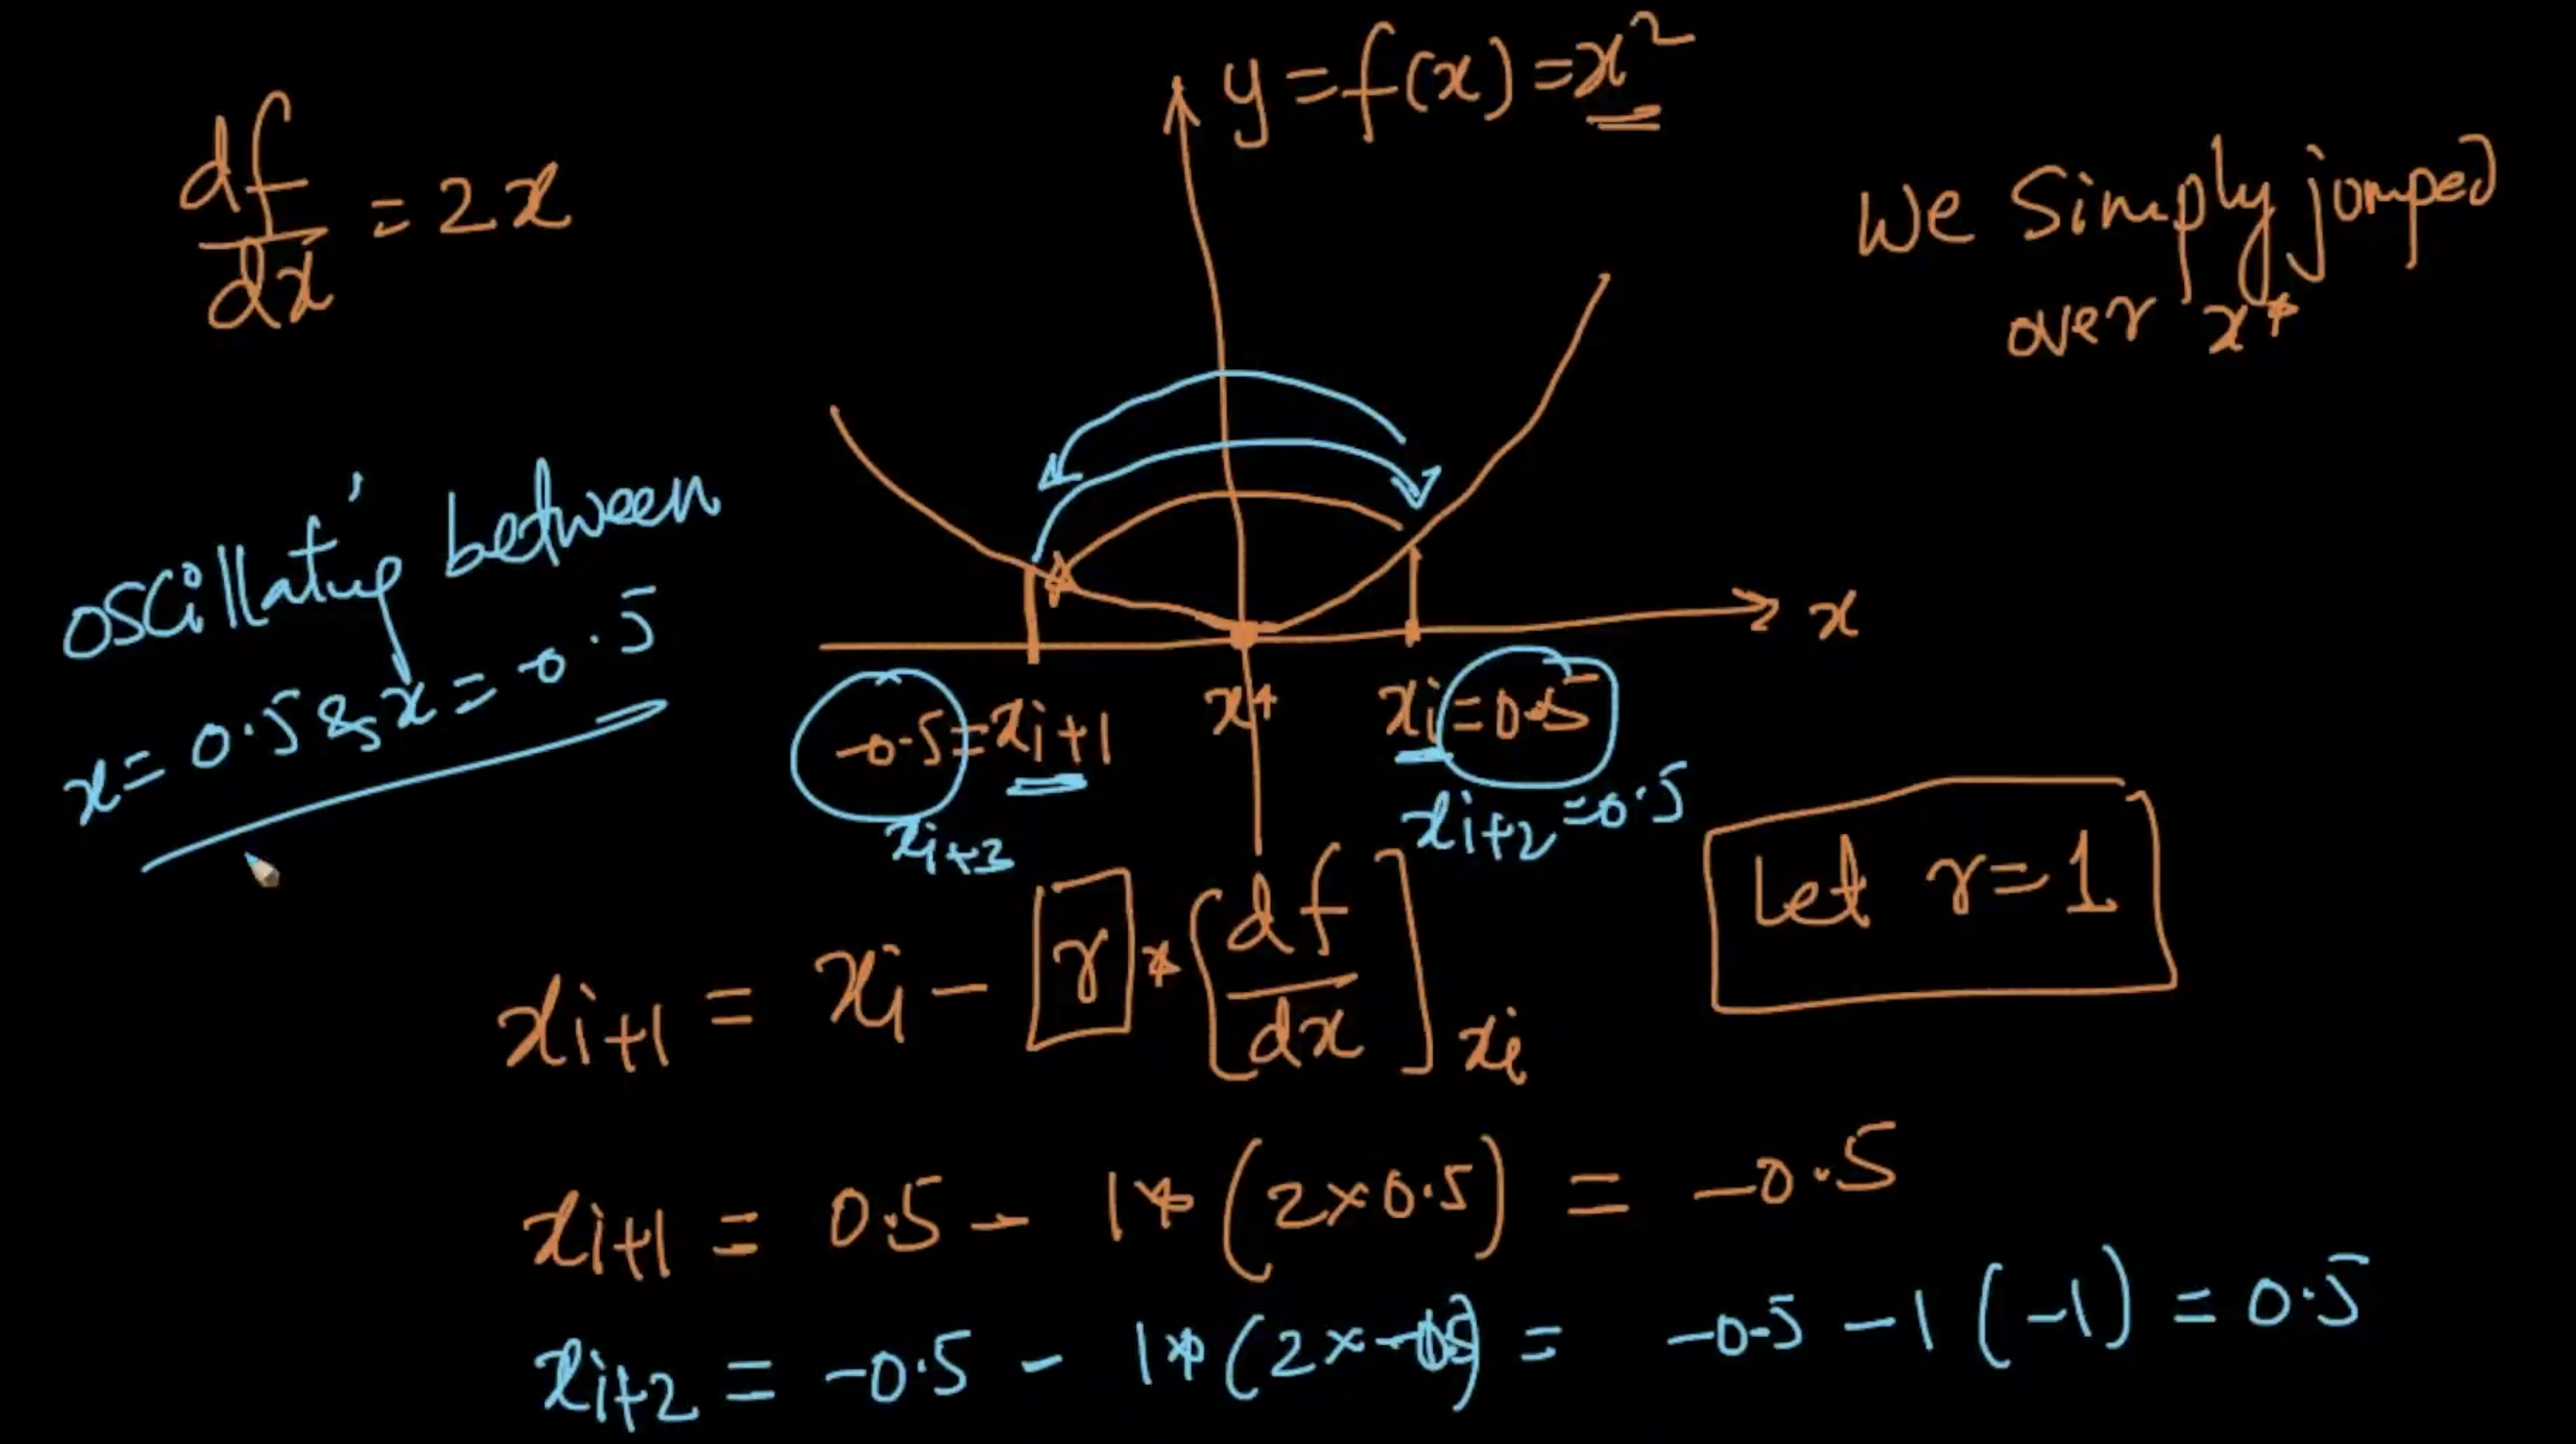 y = f(x) = x²
df/dx = 2x
We Simply jumped
over x*
oscillating between
x = 0.5 & x = -0.5
x
-0.5 = xi+1
x*
xi = 0.5
xi+3
xi+2 = 0.5
Let r = 1
xi+1 = xi - r * [df/dx]xi
xi+1 = 0.5 - 1* (2×0.5) = -0.5
xi+2 = -0.5 - 1* (2×-0.5) = -0.5 - 1 (-1) = 0.5